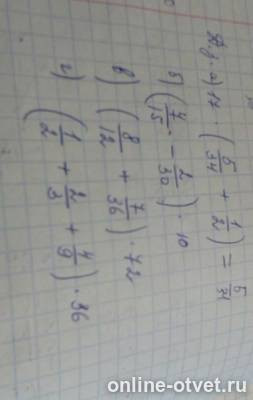 а) 17 · (5/34 + 1/2) = 5/34
б) (4/15 − 2/30) · 10
в) (8/12 + 7/36) · 72
г) (1/2 + 2/3 + 4/9) · 36
online-otvet.ru